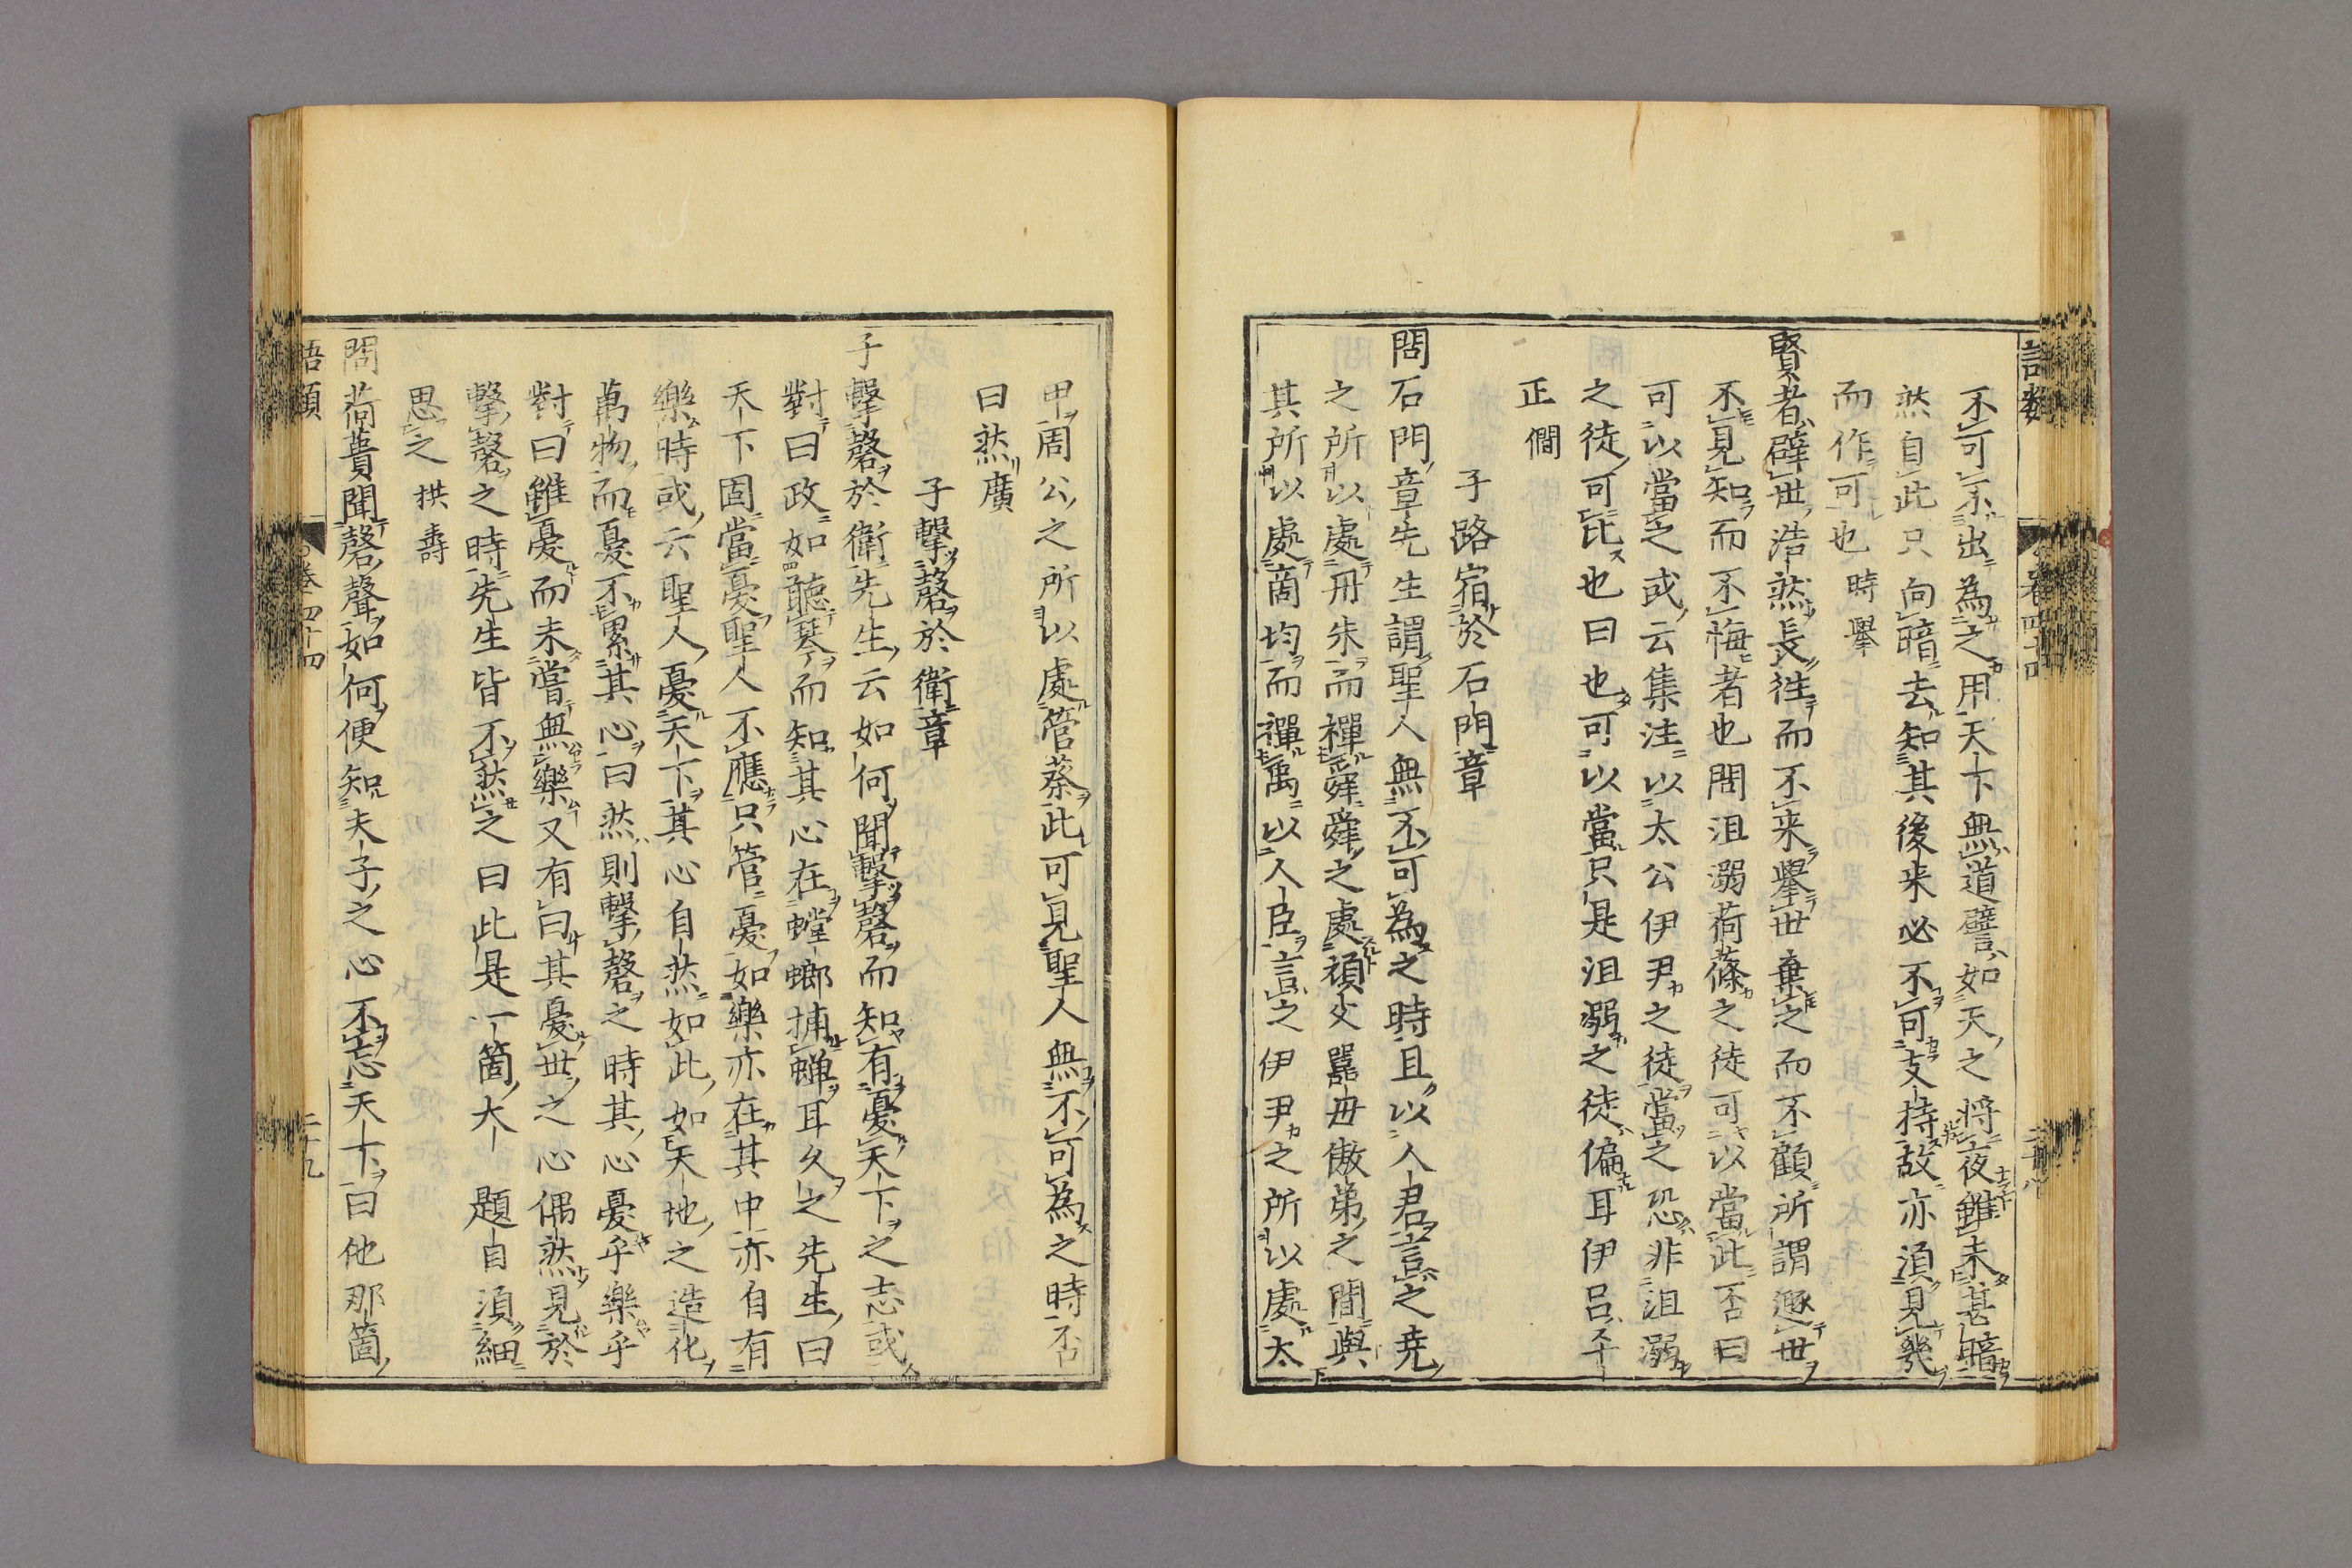 不可不出為之用天下無道譬如天之將夜雖未甚暗
然自此只向暗去知其後来必不可支持故亦須見幾
而作可也 時舉
賢者辟世浩然長往而不来舉世棄之而不顧所謂遯世
不見知而不悔者也問沮溺荷蓧之徒可以當此否曰
可以當之或云集注以太公伊尹之徒當之恐非沮溺
之徒可比也曰也可以當只是沮溺之徒偏耳伊呂平
正 僩
子路宿於石門章
問石門章先生謂聖人無不可為之時且以人君言之堯
之所以處丹朱而禪舜舜之處頑父嚚母傲弟之間與
其所以處商均而禪禹以人臣言之伊尹之所以處太
甲周公之所以處管蔡此可見聖人無不可為之時否
曰然 廣
子擊磬於衛章
子擊磬於衛先生云如何聞擊磬而知有憂天下之志或
對曰政如聽琴而知其心在螳螂捕蟬耳久之先生曰
天下固當憂聖人不應只管憂如樂亦在其中亦自有
樂時或云聖人憂天下其心自然如此如天地之造化
萬物而憂不累其心曰然則擊磬之時其心憂乎樂乎
對曰雖憂而未嘗無樂又有曰其憂世之心偶然見於
擊磬之時先生皆不然之曰此是一箇大題目須細
思之 拱壽
問荷蕢聞磬聲如何便知夫子之心不忘天下曰他那箇
語類 卷四十四 二十九